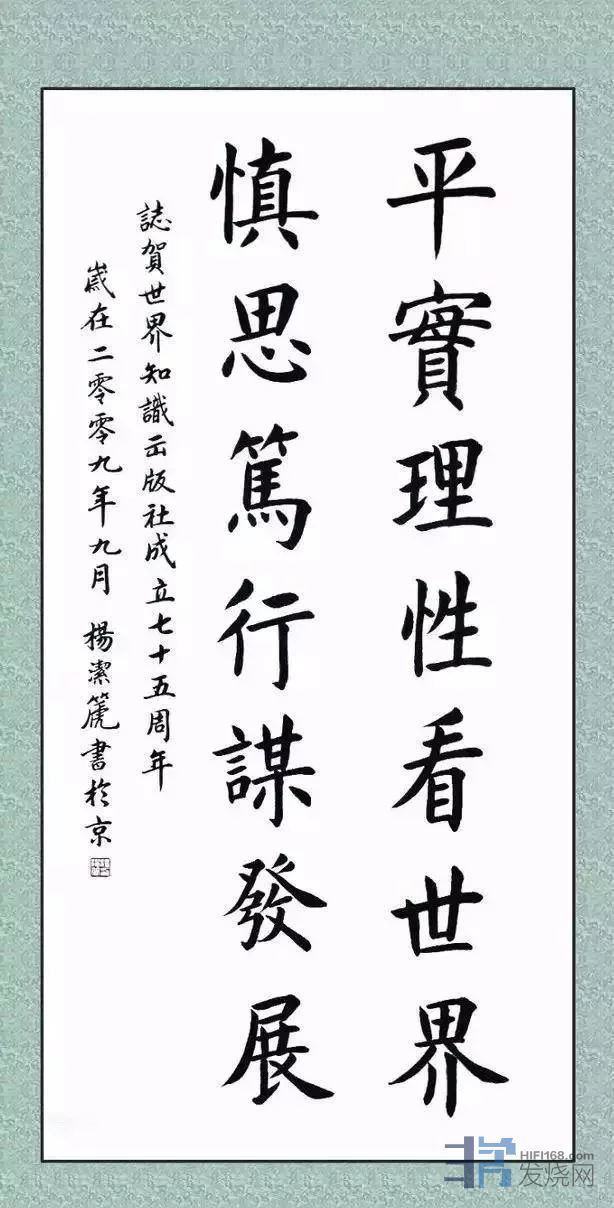 平實理性看世界
慎思篤行謀發展
誌賀世界知識出版社成立七十五周年
歲在二零零九年九月 楊潔篪書於京
HIFI168.com
发烧网